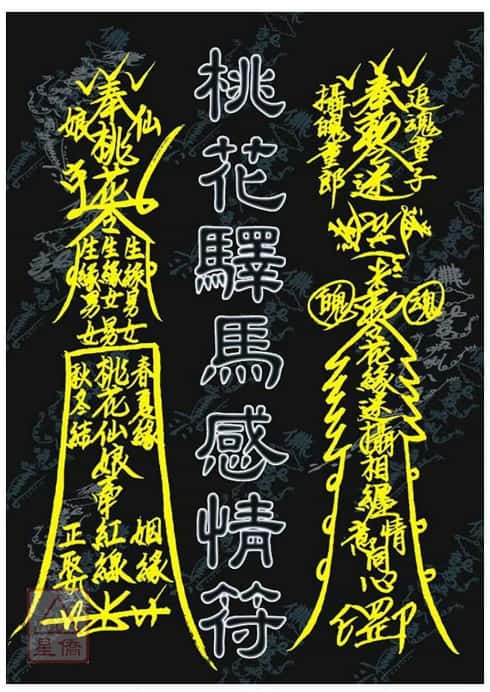 桃花驛馬感情符
追魂童子
奉勅令迷
攝魄童郎
魂
魄
花緣迷攝相纏
情
意同心
罡印
仙
奉桃花
娘
生緣男女
生緣女男
生緣男女
春夏緣
姻緣
桃花仙娘牽紅線
秋冬結
正娶
星僑